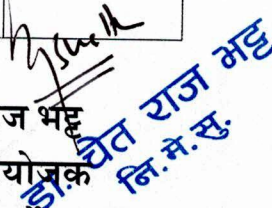 ज भट्ट
योजक
डा. चेत राज भट्ट
नि.मे.सु.